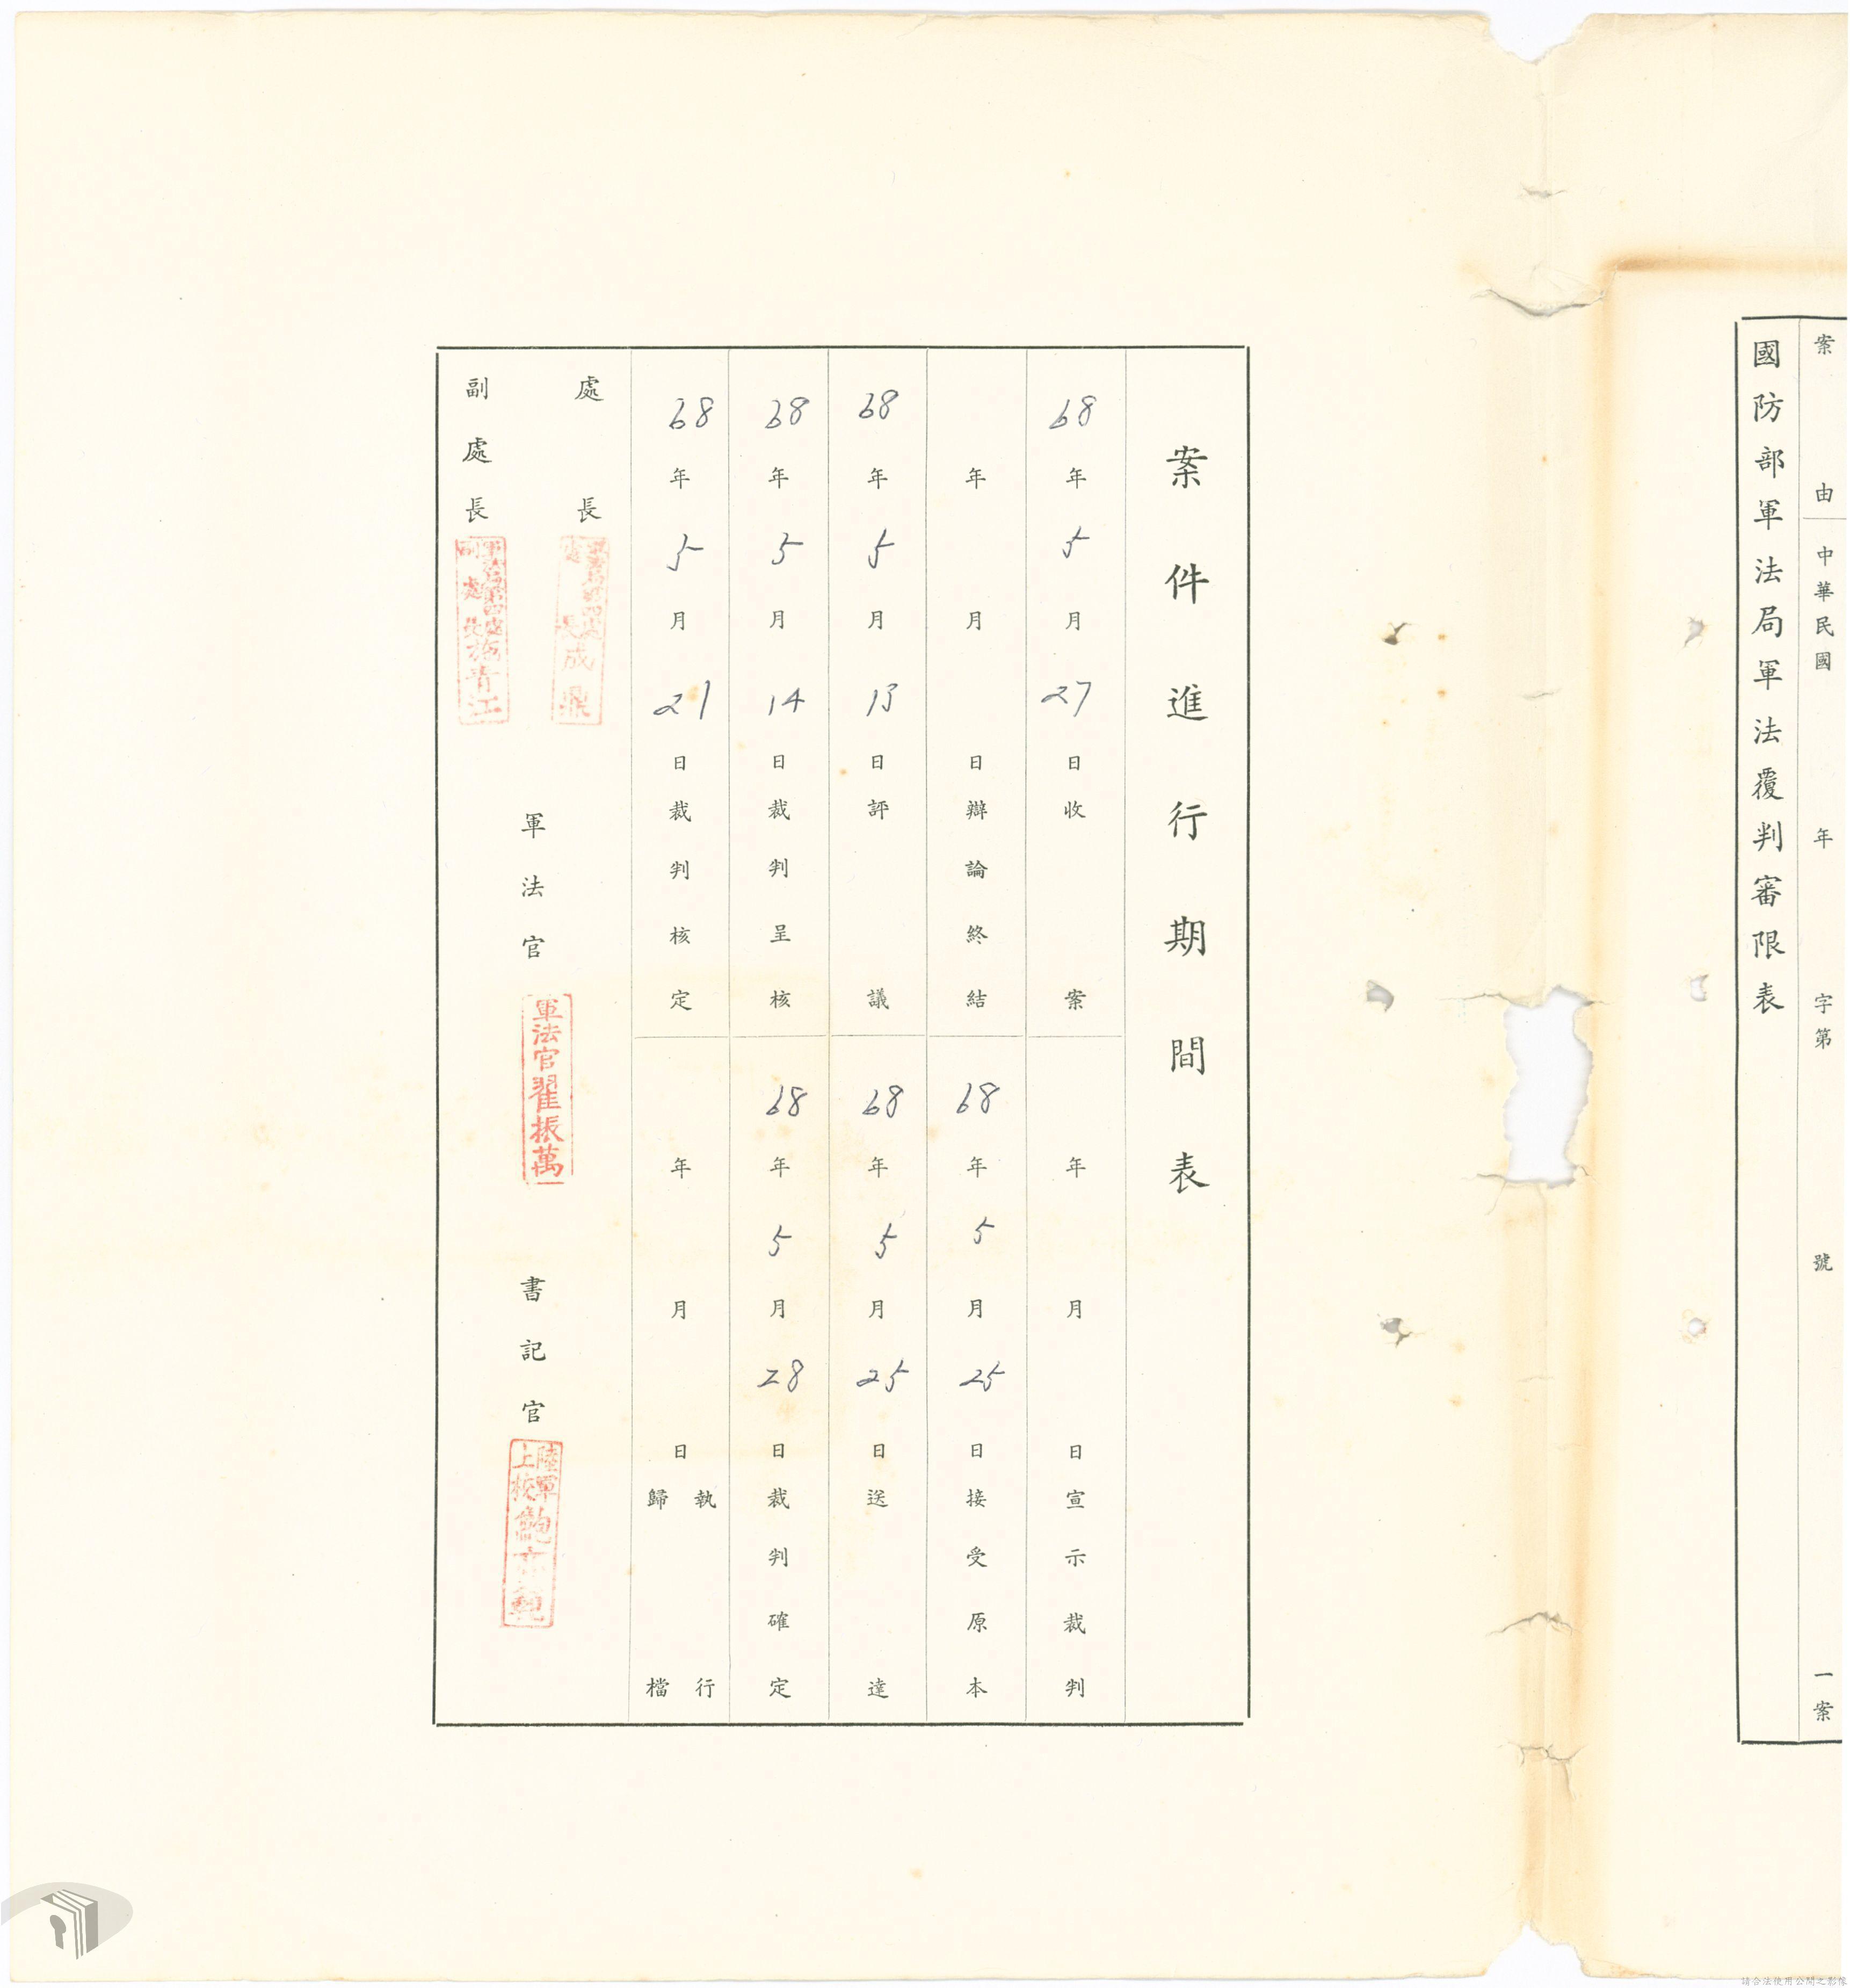 案由
中華民國 年 字第 號 一案
國防部軍法局軍法覆判審限表
案件進行期間表
68年5月27日收案
年 月 日宣示裁判
年 月 日辯論終結
68年5月25日接受原本
68年5月13日評議
68年5月25日送達
68年5月14日裁判呈核
68年5月28日裁判確定
68年5月21日裁判核定
年 月 日執行
歸檔
處長
成鼎
副處長
軍法局第四處
副處長施青江
軍法官
軍法官翟振萬
書記官
陸軍
上校
請合法使用公開之影像